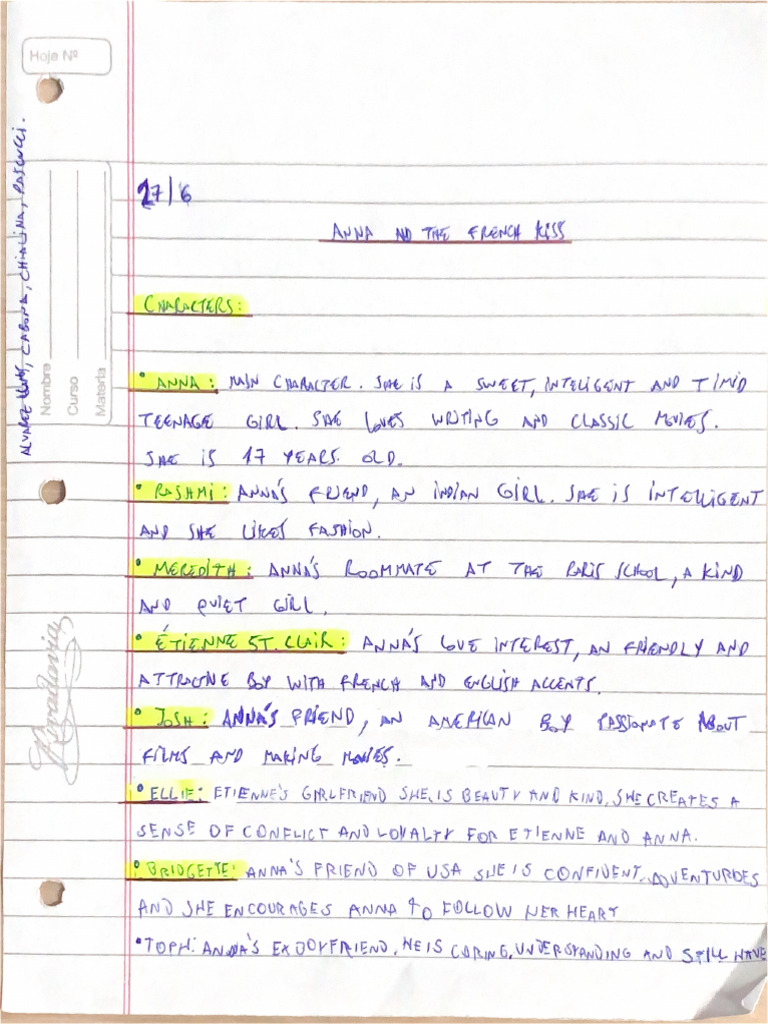 Hoja Nº
Nombre
Curso
Materia
Rivadavia
27/6
ANNA AND THE FRENCH KISS
CHARACTERS:
• ANNA: MAIN CHARACTER. SHE IS A SWEET, INTELIGENT AND TIMID
TEENAGE GIRL. SHE LOVES WRITING AND CLASSIC MOVIES.
SHE IS 17 YEARS OLD.
• RASHMI: ANNA'S FRIEND, AN INDIAN GIRL. SHE IS INTELLIGENT
AND SHE LIKES FASHION.
• MEREDITH: ANNA'S ROOMMATE AT THE PARIS SCHOOL, A KIND
AND QUIET GIRL.
• ÉTIENNE ST. CLAIR: ANNA'S LOVE INTEREST, AN FRIENDLY AND
ATTRACTIVE BOY WITH FRENCH AND ENGLISH ACCENTS.
• JOSH: ANNA'S FRIEND, AN AMERICAN BOY PASSIONATE ABOUT
FILMS AND MAKING MOVIES.
• ELLIE: ETIENNE'S GIRLFRIEND SHE IS BEAUTY AND KIND, SHE CREATES A
SENSE OF CONFLICT AND LOYALTY FOR ETIENNE AND ANNA.
• BRIDGETTE: ANNA'S FRIEND OF USA SHE IS CONFIDENT, ADVENTUROES
AND SHE ENCOURAGES ANNA TO FOLLOW HER HEART
• TOPH: ANNA'S EXBOYFRIEND, HE IS CARING, UNDERSTANDING AND STILL HAVE